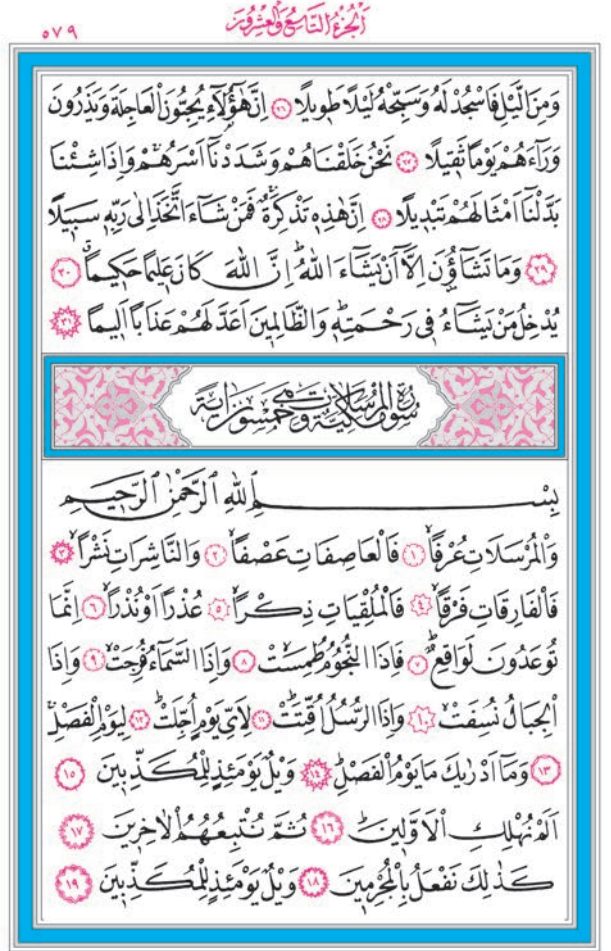 ٥٧٩
اَلْجُزْءُ التَّاسِعُ وَالْعِشْرُونَ
وَمِنَ الَّيْلِ فَاسْجُدْ لَهُ وَسَبِّحْهُ لَيْلًا طَوِيلًا ﴿٢٦﴾ اِنَّ هٰٓؤُ۬لَٓاءِ يُحِبُّونَ الْعَاجِلَةَ وَيَذَرُونَ
وَرَٓاءَهُمْ يَوْمًا ثَقِيلًا ﴿٢٧﴾ نَحْنُ خَلَقْنَاهُمْ وَشَدَدْنَٓا اَسْرَهُمْۚ وَاِذَا شِئْنَا
بَدَّلْنَٓا اَمْثَالَهُمْ تَبْدِيلًا ﴿٢٨﴾ اِنَّ هٰذِهِ تَذْكِرَةٌۚ فَمَنْ شَٓاءَ اتَّخَذَ اِلٰى رَبِّهِ سَبِيلًا
﴿٢٩﴾ وَمَا تَشَٓاؤُ۫نَ اِلَّٓا اَنْ يَشَٓاءَ اللّٰهُۜ اِنَّ اللّٰهَ كَانَ عَلِيمًا حَكِيمًاۗ ﴿٣٠﴾
يُدْخِلُ مَنْ يَشَٓاءُ فِي رَحْمَتِهِۜ وَالظَّالِمِينَ اَعَدَّ لَهُمْ عَذَابًا اَلِيمًا ﴿٣١﴾
سُورَةُ الْمُرْسَلَاتِ مَكِّيَّةٌ وَهِيَ خَمْسُونَ اٰيَةً
بِسْمِ اللّٰهِ الرَّحْمٰنِ الرَّحِيمِ
وَالْمُرْسَلَاتِ عُرْفًاۙ ﴿١﴾ فَالْعَاصِفَاتِ عَصْفًاۙ ﴿٢﴾ وَالنَّاشِرَاتِ نَشْرًاۙ ﴿٣﴾
فَالْفَارِقَاتِ فَرْقًاۙ ﴿٤﴾ فَالْمُلْقِيَاتِ ذِكْرًاۙ ﴿٥﴾ عُذْرًا اَوْ نُذْرًاۙ ﴿٦﴾ اِنَّمَا
تُوعَدُونَ لَوَاقِعٌۜ ﴿٧﴾ فَاِذَا النُّجُومُ طُمِسَتْۙ ﴿٨﴾ وَاِذَا السَّمَٓاءُ فُرِجَتْۙ ﴿٩﴾ وَاِذَا
الْجِبَالُ نُسِفَتْۙ ﴿١٠﴾ وَاِذَا الرُّسُلُ اُقِّتَتْۜ ﴿١١﴾ لِاَيِّ يَوْمٍ اُجِّلَتْۜ ﴿١٢﴾ لِيَوْمِ الْفَصْلِۚ
﴿١٣﴾ وَمَٓا اَدْرٰيكَ مَا يَوْمُ الْفَصْلِۜ ﴿١٤﴾ وَيْلٌ يَوْمَئِذٍ لِلْمُكَذِّبِينَ ﴿١٥﴾
اَلَمْ نُهْلِكِ الْاَوَّلِينَۜ ﴿١٦﴾ ثُمَّ نُتْبِعُهُمُ الْاٰخِرِينَ ﴿١٧﴾
كَذٰلِكَ نَفْعَلُ بِالْمُجْرِمِينَ ﴿١٨﴾ وَيْلٌ يَوْمَئِذٍ لِلْمُكَذِّبِينَ ﴿١٩﴾